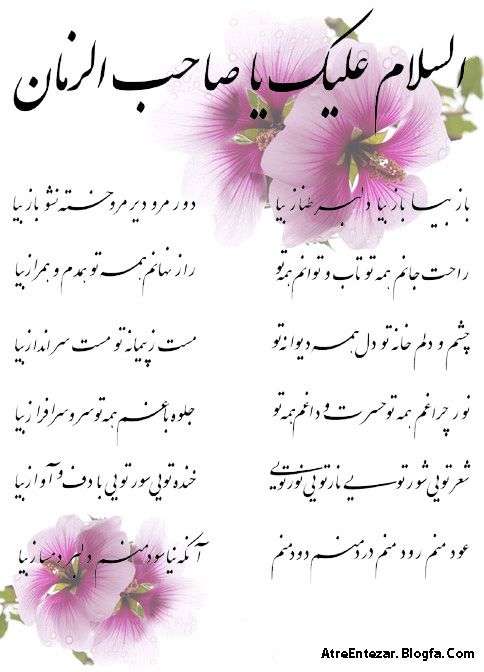 السلام علیک یا صاحب الزمان
باز بیا باز بیا دلبر طناز بیا دور مرو دیر مرو خسته نشو باز بیا
راحت جانم همه تو تاب و توانم همه تو راز نهانم همه تو همدم و همراز بیا
چشم و دلم خانه تو دل همه دیوانه تو مست ز پیمانه تو مست سرانداز بیا
نور چراغم همه تو حسرت و داغم همه تو جلوه باغم همه تو سرو سرافراز بیا
شعر تویی شور تویی ناز تویی نور تویی خنده تویی سور تویی با دف و آواز بیا
عود منم رود منم درد منم دود منم آنکه نیاسود منم دلبر دمساز بیا
AtreEntezar.Blogfa.Com